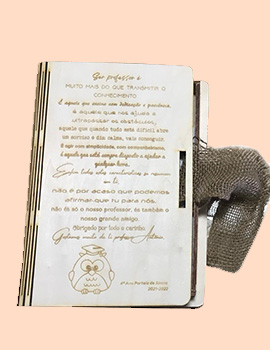 Ser professor é
MUITO MAIS DO QUE TRANSMITIR O
CONHECIMENTO
É aquele que ensina com dedicação e paciência,
é aquele que nos ajuda a
ultrapassar os obstáculos,
aquele que quando tudo está difícil abre
um sorriso e diz calma, vais conseguir.
É agir com simplicidade, com
é aquele que está sempre disposto a ajudar a
qualquer hora.
Enfim todas estas características se resumem
em ti,
não é por acaso que podemos
afirmar que tu para nós,
não és só o nosso professor, és também o
nosso grande amigo.
Obrigado por todo o carinho.
Gostamos muito de ti professor
4º Ano
2021-2022